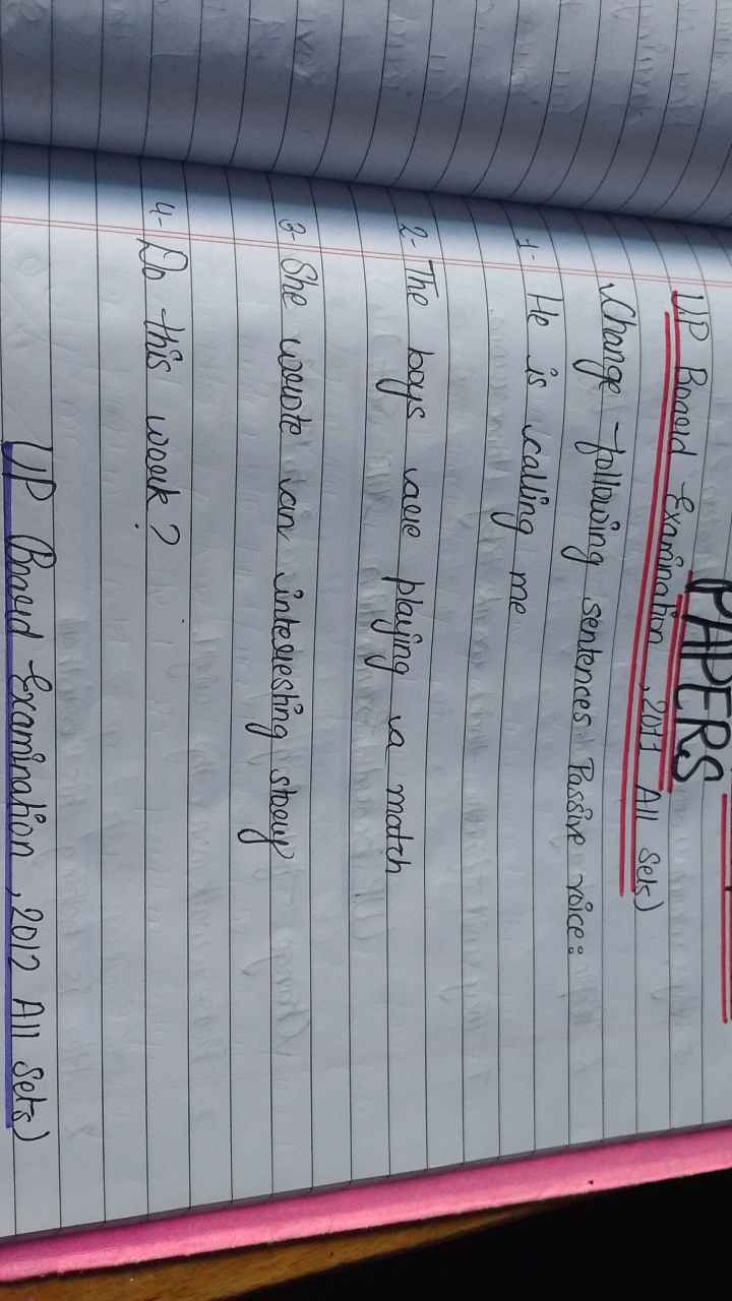 PAPERS
UP Board Examination, 2011 All Sets)
Change following sentences Passive voice:
1- He is calling me
2- The boys are playing a match
3- She wrote an interesting story
4- Do this work?
UP Board Examination, 2012 All Sets)